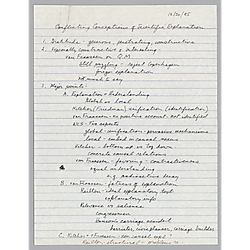 10/20/85
Conflicting Conceptions of Scientific Explanation
1. Gratitude - generous, penetrating, constructive
2. Especially constructive & interesting
van Fraassen on Q.M.
Still wiggling - reject Copenhagen
forego explanation
Not much to say
3. Major points:
A. Explanation & Understanding
Global vs local
Kitcher/Friedman: unification (identification)
van Fraassen: account not identified
WCS: Two aspects
global - unification - pervasive mechanisms
local - embed in causal nexus
Kitcher - bottom up vs top down
concrete causal relations
van Fraassen - favoring - contrastiveness
equal understanding
e.g. radioactive decay
B. van Fraassen: of explanation
Railton - ideal explanatory text
explanatory info
Relevance vs salience
congressman
carriage accident
barrister, carriage builder
C. Kitcher + Fraassen:
Railton,